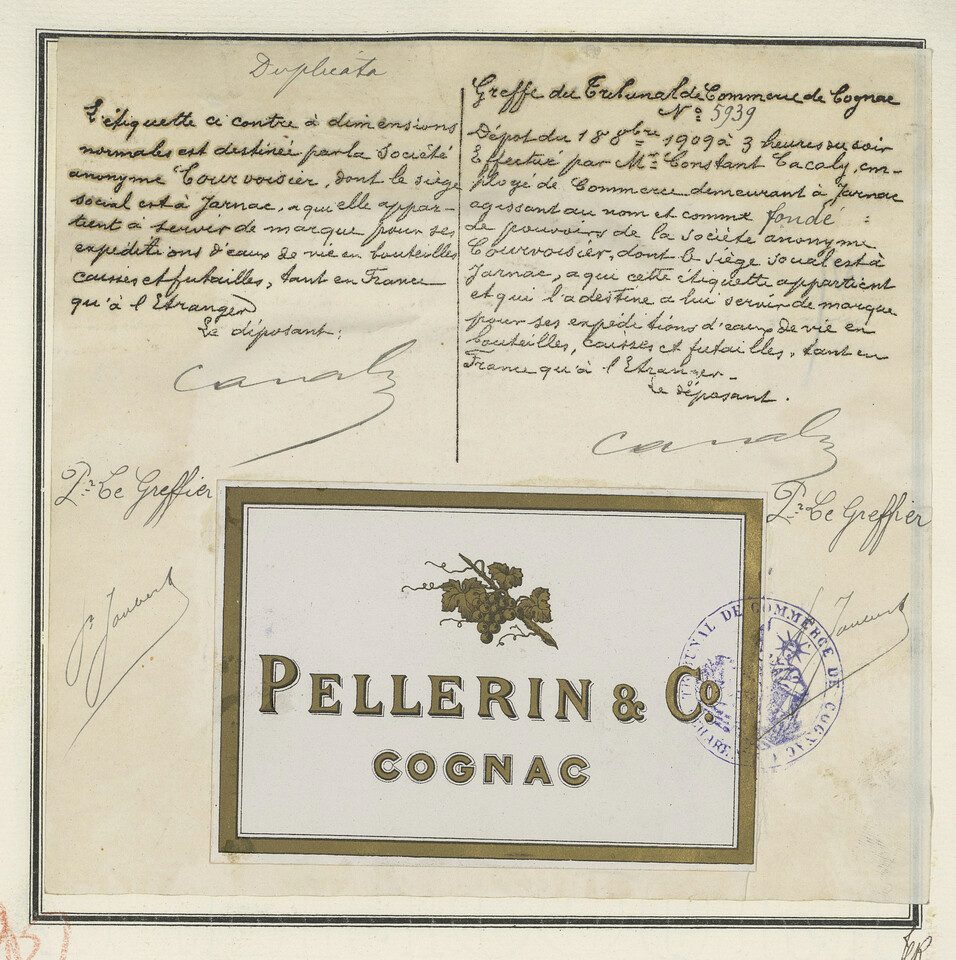 Duplicata
L'étiquette ci contre à dimensions
normales est destinée par la Société
anonyme Courvoisier, dont le siège
social est à Jarnac, à qui elle appar-
tient à servir de marque pour ses
expéditions d'eaux de vie en bouteilles
caisses et futailles, tant en France
qu'à l'Etranger
Le déposant:
Pr Le Greffier
Greffe du Tribunal de Commerce de Cognac
No 5939
Dépot du 18 8bre 1909 à 3 heures du soir
Effectué par Mr Constant Cacaly, em-
ployé de Commerce demeurant à Jarnac
agissant au nom et comme fondé
de pouvoirs de la Société anonyme
Courvoisier, dont le siège social est à
Jarnac, à qui cette étiquette appartient
et qui l'a destine a lui servir de marque
pour ses expéditions d'eaux de vie en
bouteilles, caisses et futailles, tant en
France qu'à l'Etranger.
Le déposant.
Pr Le Greffier
PELLERIN & Co.
COGNAC
TRIBUNAL DE COMMERCE DE COGNAC